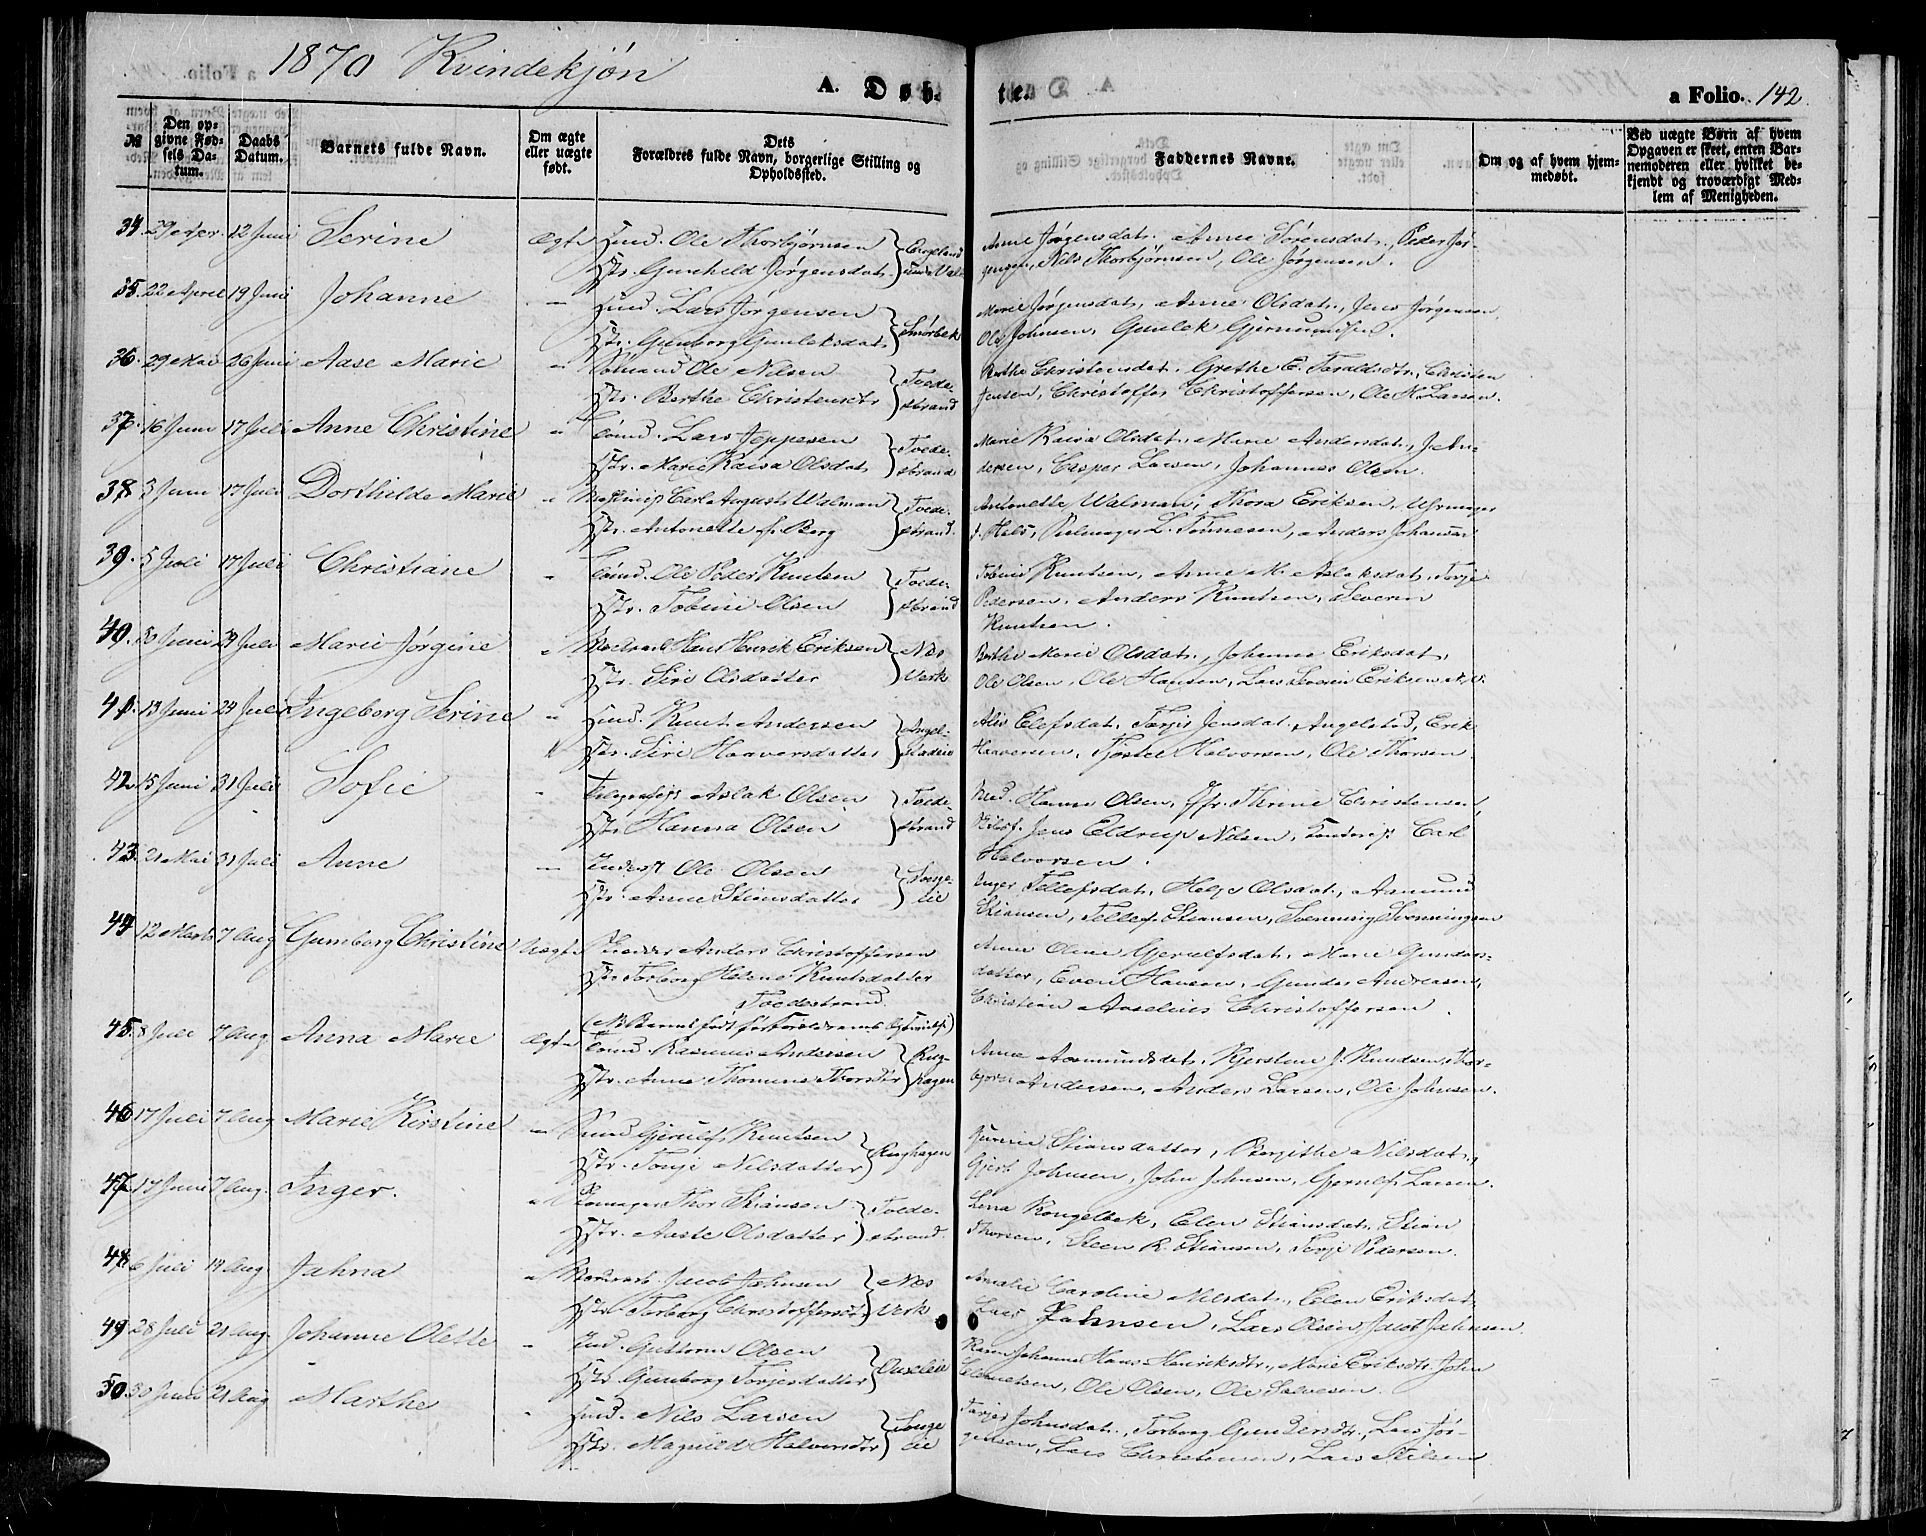 1870 Kvindekjøn
A. Døb-
te.
a Folio. 142.
№
Den op-
givne Fød-
sels Da-
tum.
Daabs
Datum.
Barnets fulde Navn.
Om ægte
eller uægte
født.
Dets
Forældres fulde Navn, borgerlige Stilling og
Opholdssted.
Faddernes Navne.
Om og af hvem hjem-
medøbt.
Ved uægte Børn af hvem
Opgaven er skeet, enten Bar-
nemoderen eller hvilket be-
kjendt og troværdigt Med-
lem af Menigheden.
34. 29 Apr. 12 Juni Serine Ægte Huud. Ole Thorbjørnsen
Hstr. Gunhild Jørgensdat.
Anne Jørgensdat. Anne Sørensdat., Peder Jør-
gensen, Nils Thorbjørnsen, Ole Jørgensen.
35. 22 April 19 Juni Johanne " Huud. Lars Jørgensen
Hstr. Gunborg Gunleksdat. Smørbek
Marie Jørgensdat, Anne Olsdat., Jens Jørgensen,
Ole Johnsen, Gunlek Gjermundsen.
36. 29 Mai 26 Juni Aase Marie " Sømand Ole Nilsen
Hstr. Berthe Christensdtr Tvede-
strand
Berthe Christensdat. Grethe E. Taraldsdtr., Christen
Jensen, Christoffer Christoffersen, Ole N. Larsen.
37. 16 Juni 17 Juli Anne Christine " Sømd. Lars Jeppesen
Hstr. Marie Raisa Olsdat. Tvede-
strand
Marie Raisa Olsdat. Marie Andersdat., J. An-
dersen, Casper Larsen, Johannes Olsen.
38. 3 Juni 17 Juli Dorthilde Marie " Carl August Walman
Hstr. Antonette f. Berg Tvede-
strand.
Antonette Walman, Thora Eriksen, Uhrmager
L. Tønnesen, Anders Johansen
39. 5 Juli 17 Juli Christiane " Sømd. Ole Peder Knutsen
Hstr. Tobine Olsen Tvede-
strand
Tobine Knutsen, Anne M. Aslaksdat, Torje
Pedersen, Anders Knutsen, Severin
Knutsen.
40. 30 Juni 24 Juli Marie Jørgine " Hans Henrik Eriksen
Hstr. Siri Olsdatter Næs
Verk
Berthe Marie Olsdat., Johanne Eriksdat,
Ole Olsen, Ole Hansen, Lars Severin Eriksen N.V.
41. 13 Juni 24 Juli Ingeborg Serine " Huud. Knut Andersen
Hstr. Siri Haaversdatter Angel-
staden
Alis Elefsdat, Torjer Jensdat. Angelstad, Erik
Haaversen, Tjøstel Halvorsen, Ole Thorsen
42. 15 Juni 31 Juli Sofie " Telegrafist Aslak Olsen
Hstr Hanna Olsen Tvede-
strand
Mad. Hanne Olsen, Jfr. Thrine Christensen,
Jens Eldrup Nilsen, Kontorist Carl
Halvorsen.
43. 21 Mai 31 Juli Anne " Inderst Ole Olsen
Hstr. Anne Stiansdatter Songe-
lie
Inger Tellefsdat, Helje Olsdat, Aamund
Stiansen, Tellef Stiansen, Svennung Svenningsen
44 12 Marts 7 Aug Gumborg Christine Uægte Anders Christoffersen
Torborg Helene Knutsdatter
Tvedestrand.
Anne Oline Gjerulfsdat, Marie Gunders-
datter, Even Hansen, Gunder Andreasen,
Christian Anselius Christoffersen.
45. 8 Juli 7 Aug Anna Marie Ægte Sømd. Rasmus Andersen
Hstr. Anne Thomine Thorsdtr Rug-
hagen
Anne Aamundsdat, Kjerstine J. Knudsen, Thor-
bjørn Andersen, Anders Larsen, Ole Johnsen.
46 17 Juli 7 Aug Marie Kirstine " Gjerulf Knutsen
Hstr. Torje Nilsdatter Rughagen
Stiansdatter, Bergithe Nilsdat.,
Gjert Johnsen, John Johnsen, Gjerulf Larsen.
47. 17 Juni 7 Aug. Inger. " Thor Stiansen
Hstr. Aaste Olsdatter Tvede-
strand.
Lena Kongelbek, Elen Stiansdat, Stian
Thorsen, Steen R. Stiansen, Terje Pedersen.
48. 6 Juli 14 Aug Jahna " Jacob Jahnsen
Hstr. Torborg Christoffersdtr Næs
Verk
Amalie Caroline Nilsdat., Elen Eriksdat,
Lars Jahnsen, Lars Olsen, Jacob Jahnsen.
49 28 Juli 21 Aug. Johanne Olette " Huud. Guttorm Olsen
Hstr. Gunborg Torjersdatter
Karen Johanne Hans Henriksdtr., Marie Eriksdtr. John
Clemetsen, Ole Olsen, Ole Salvesen.
50 30 Juli 21 Aug Marthe " Huud. Nils Larsen
Hstr. Magnild Halvorsdtr Songe
lie
Torjer Johnsdat., Torborg Gundersdtr., Lars Jør-
gensen, Lars Christensen, Lars Nilsen